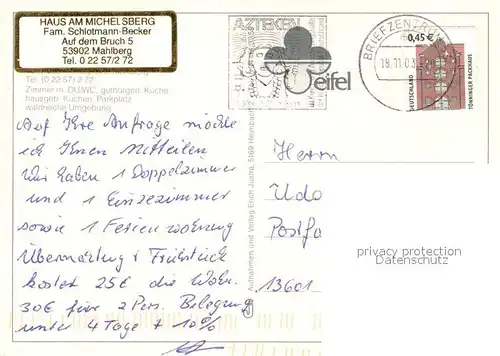 HAUS AM MICHELSBERG
Fam. Schlotmann-Becker
Auf dem Bruch 5
53902 Mahlberg
Tel. 0 22 57/2 72
Tel. (0 22 57) 2 72
Zimmer m. DU/WC, gutbürgerl. Küche
hausgem. Kuchen, Parkplatz
waldreiche Umgebung
Auf Ihre Anfrage möchte
ich Ihnen mitteilen
Wir haben 1 Doppelzimmer
und 1 Einzelzimmer
sowie 1 Ferienwohnung
Übernachtung + Frühstück
kostet 25€ die Wohn.
30€ für 2 Pers. Belegung
unter 4 Tage + 10%
Aufnahmen und Verlag Erich Justra, 5169 Heimbach
AZTEKEN
eifel
BRIEFZENTRUM
18.11.03
0,45 €
DEUTSCHLAND
TÖNNINGER PACKHAUS
Herrn
Udo
Postfa
13601
privacy protection
Datenschutz